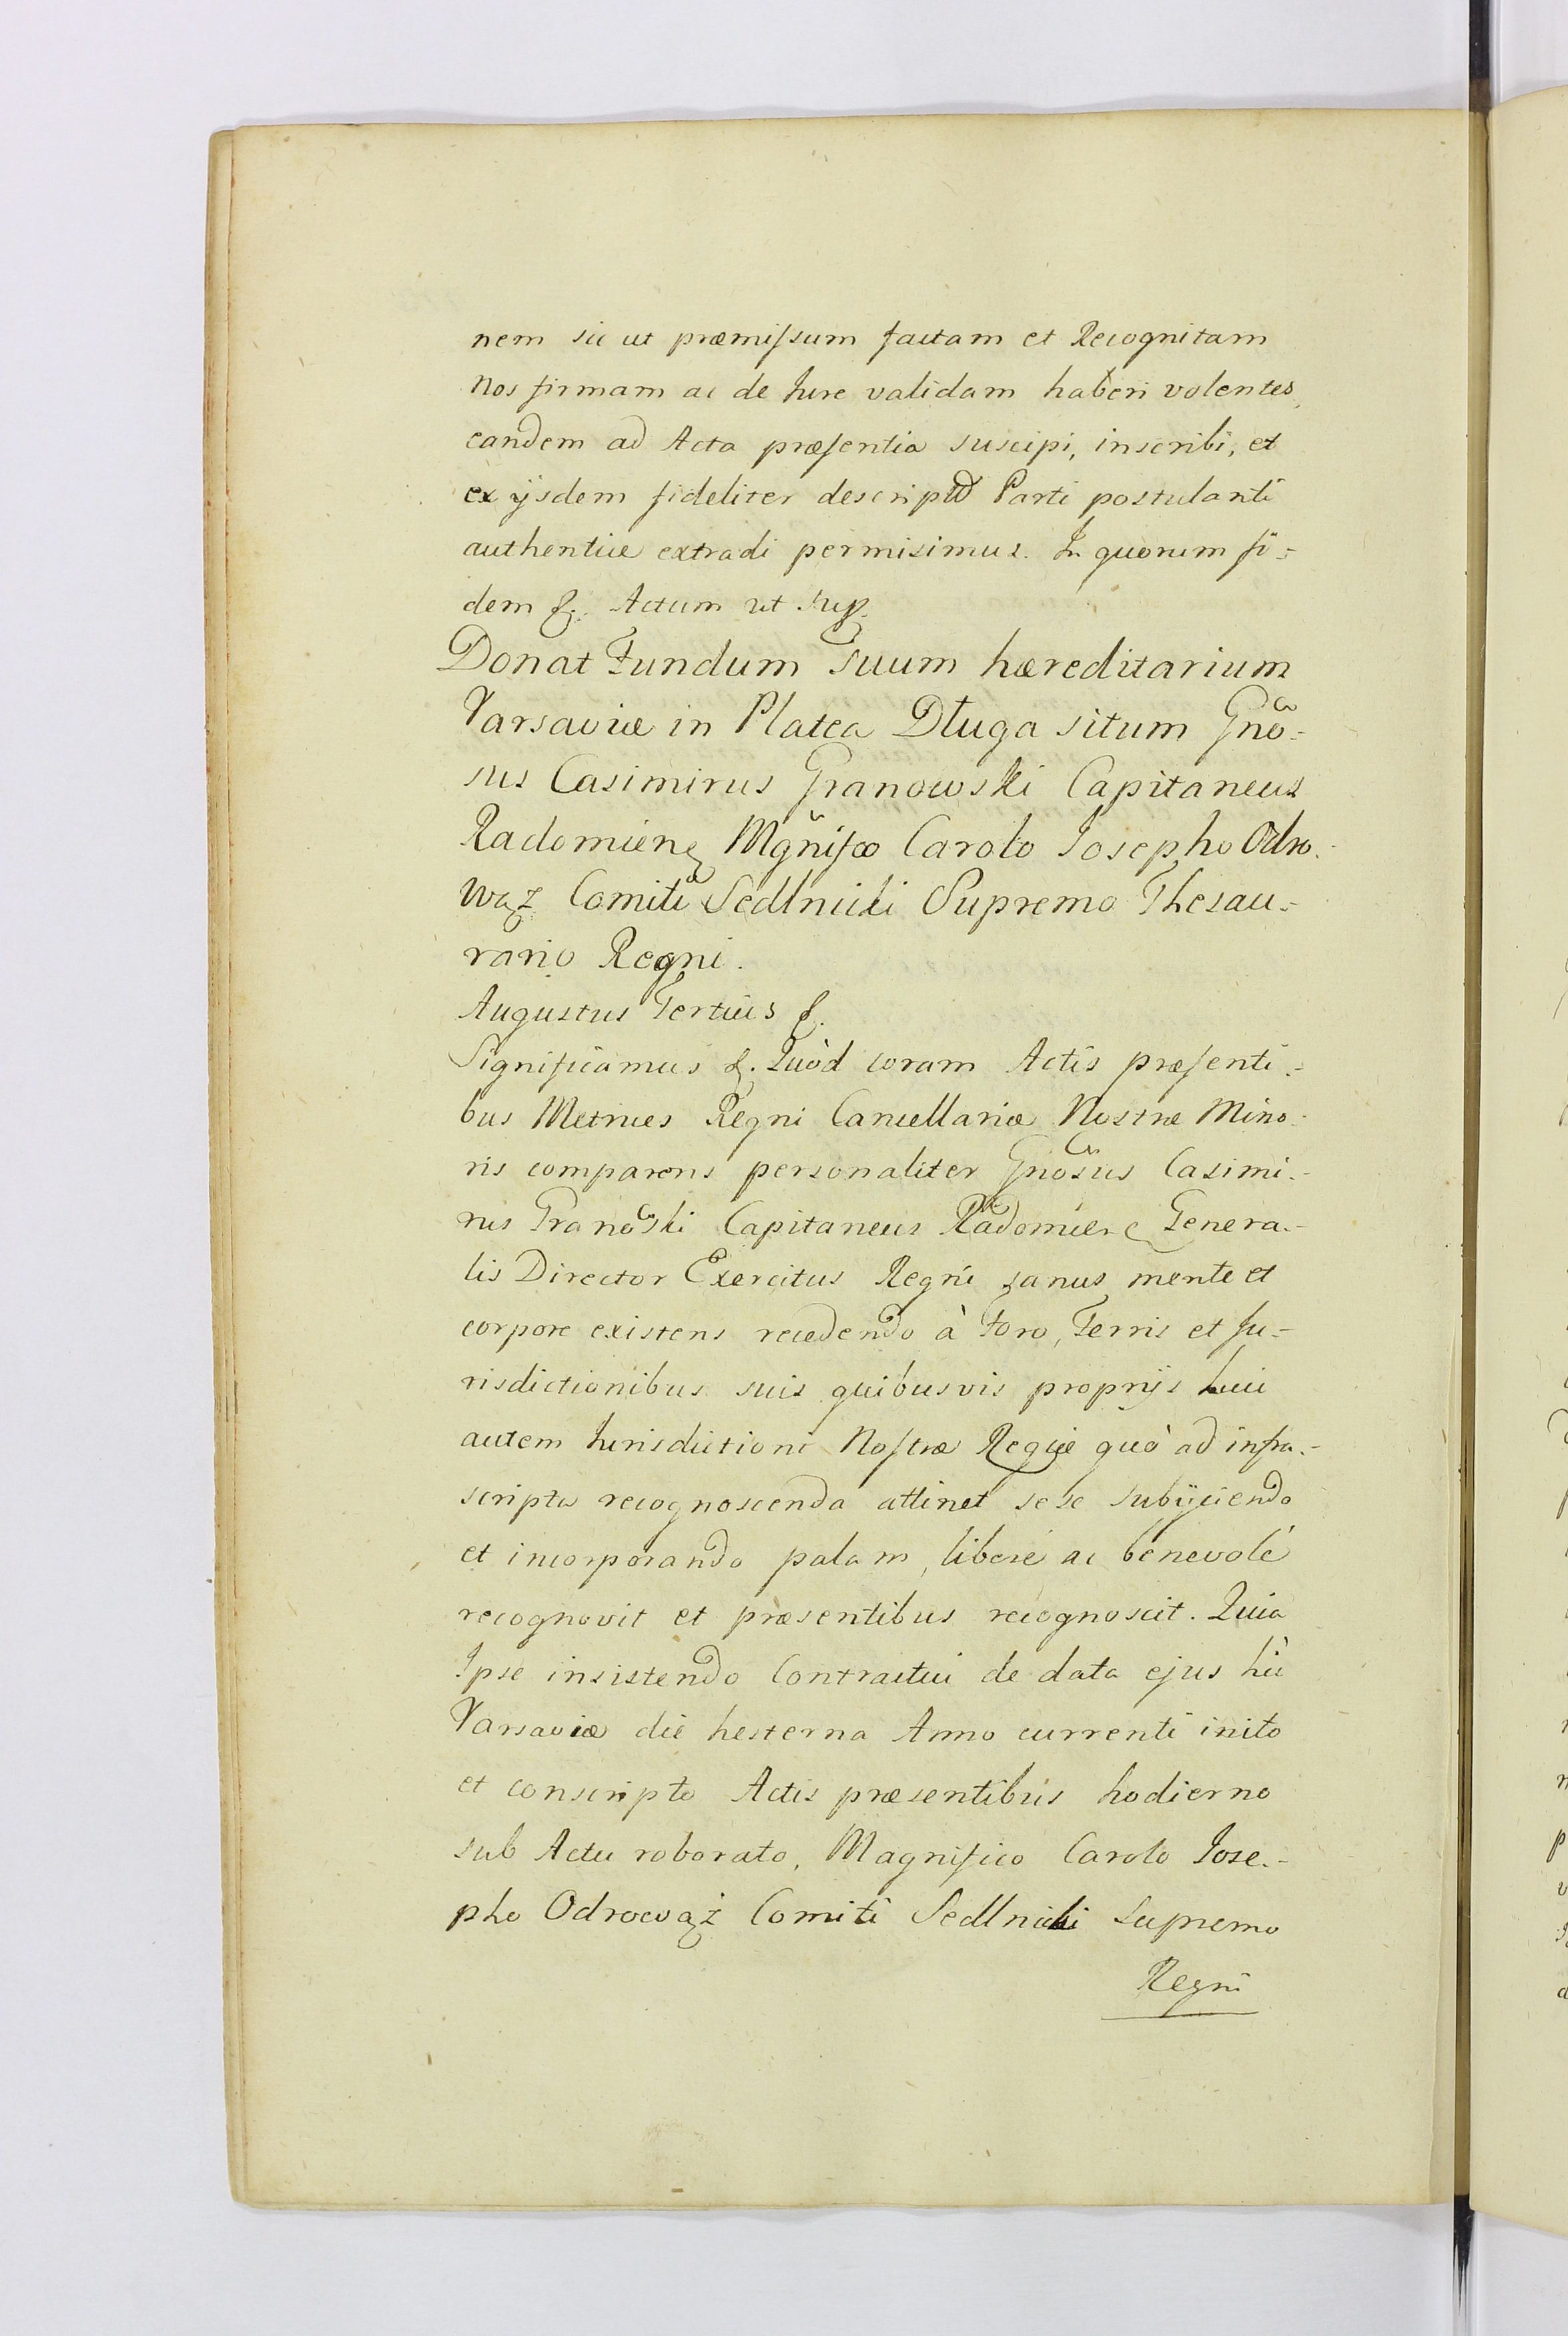 nem sic ut præmissum factam et Recognitam
Nos firmam ac de Jure validam haberi volentes,
eandem ad Acta præsentia suscipi, inscribi, et
ex ijsdem fideliter descriptã Parti postulanti
authenticè extradi permisimus. In quorum fi-
dem &. Actum ut sup.
Donat Fundum suum hæreditarium
Varsaviæ in Platea Długa situm Gnõ-
sus Casimirus Granowski Capitaneus
Radomien Mgñifco Carolo Josepho Odro-
wąz Comiti Sedlnicki Supremo Thesau-
rario Regni.
Augustus Tertius &.
Significamus &. Quòd coram Actis præsenti-
bus Metrices Regni Cancellariæ Nostræ Mino-
ris comparens personaliter Gnõsus Casimi-
rus Granoski Capitaneus Radomien Genera-
lis Director Exercitus Regni sanus mente et
corpore existens recedendo à Foro, Terris et Ju-
risdictionibus suis quibusvis proprijs huic
autem Jurisdictioni Nostræ Regiæ quò ad infra-
scripta recognoscenda attinet sese subijciendo
et incorporando palam, liberè ac benevolè
recognovit et præsentibus recognoscit. Quia
Ipse insistendo Contractui de data ejus hìc
Varsaviæ die hesterna Anno currenti inito
et conscripto Actis præsentibus hodierno
sub Actu roborato, Magnifico Carolo Jose-
pho Odrowąż Comiti Sedlnicki Supremo
Regni